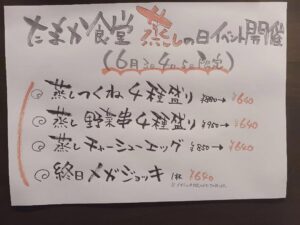 たまか食堂 蒸しの日イベント開催
(6月3日4日5日限定)
◎ 蒸しつくね4種盛り ¥880→¥640
◎ 蒸し野菜串4種盛り ¥950→¥640
◎ 蒸しチャーシューエッグ ¥850→¥640
◎ 終日メガジョッキ 1杯 ¥640